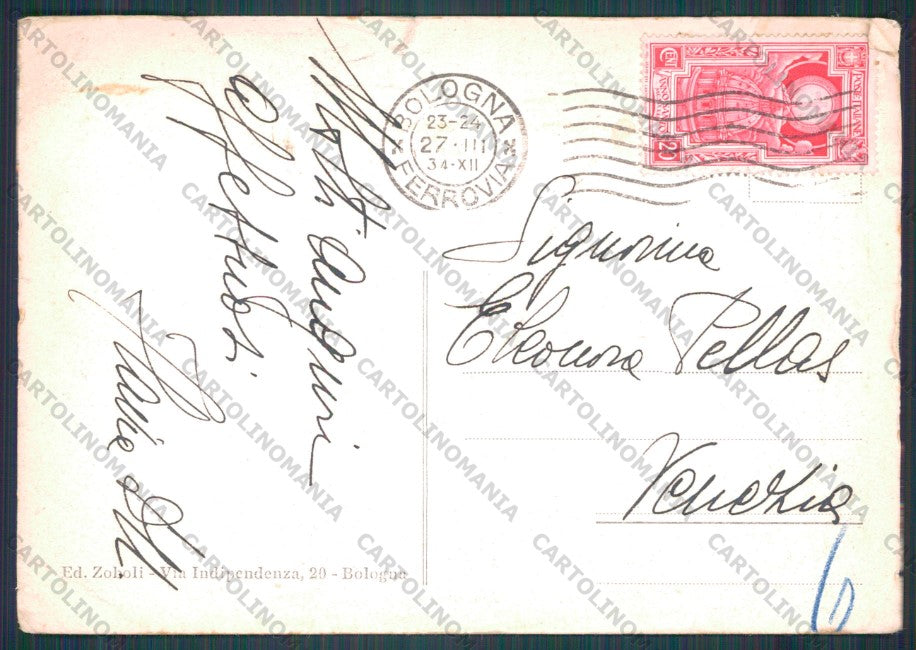 Molti auguri
affettuosi
BOLOGNA
23-24
27·III
34·XII
FERROVIA
Signorina
Eleonora Pellas
Venezia
6
Ed. Zoboli - Via Indipendenza, 29 - Bologna
CARTOLINOMANIA